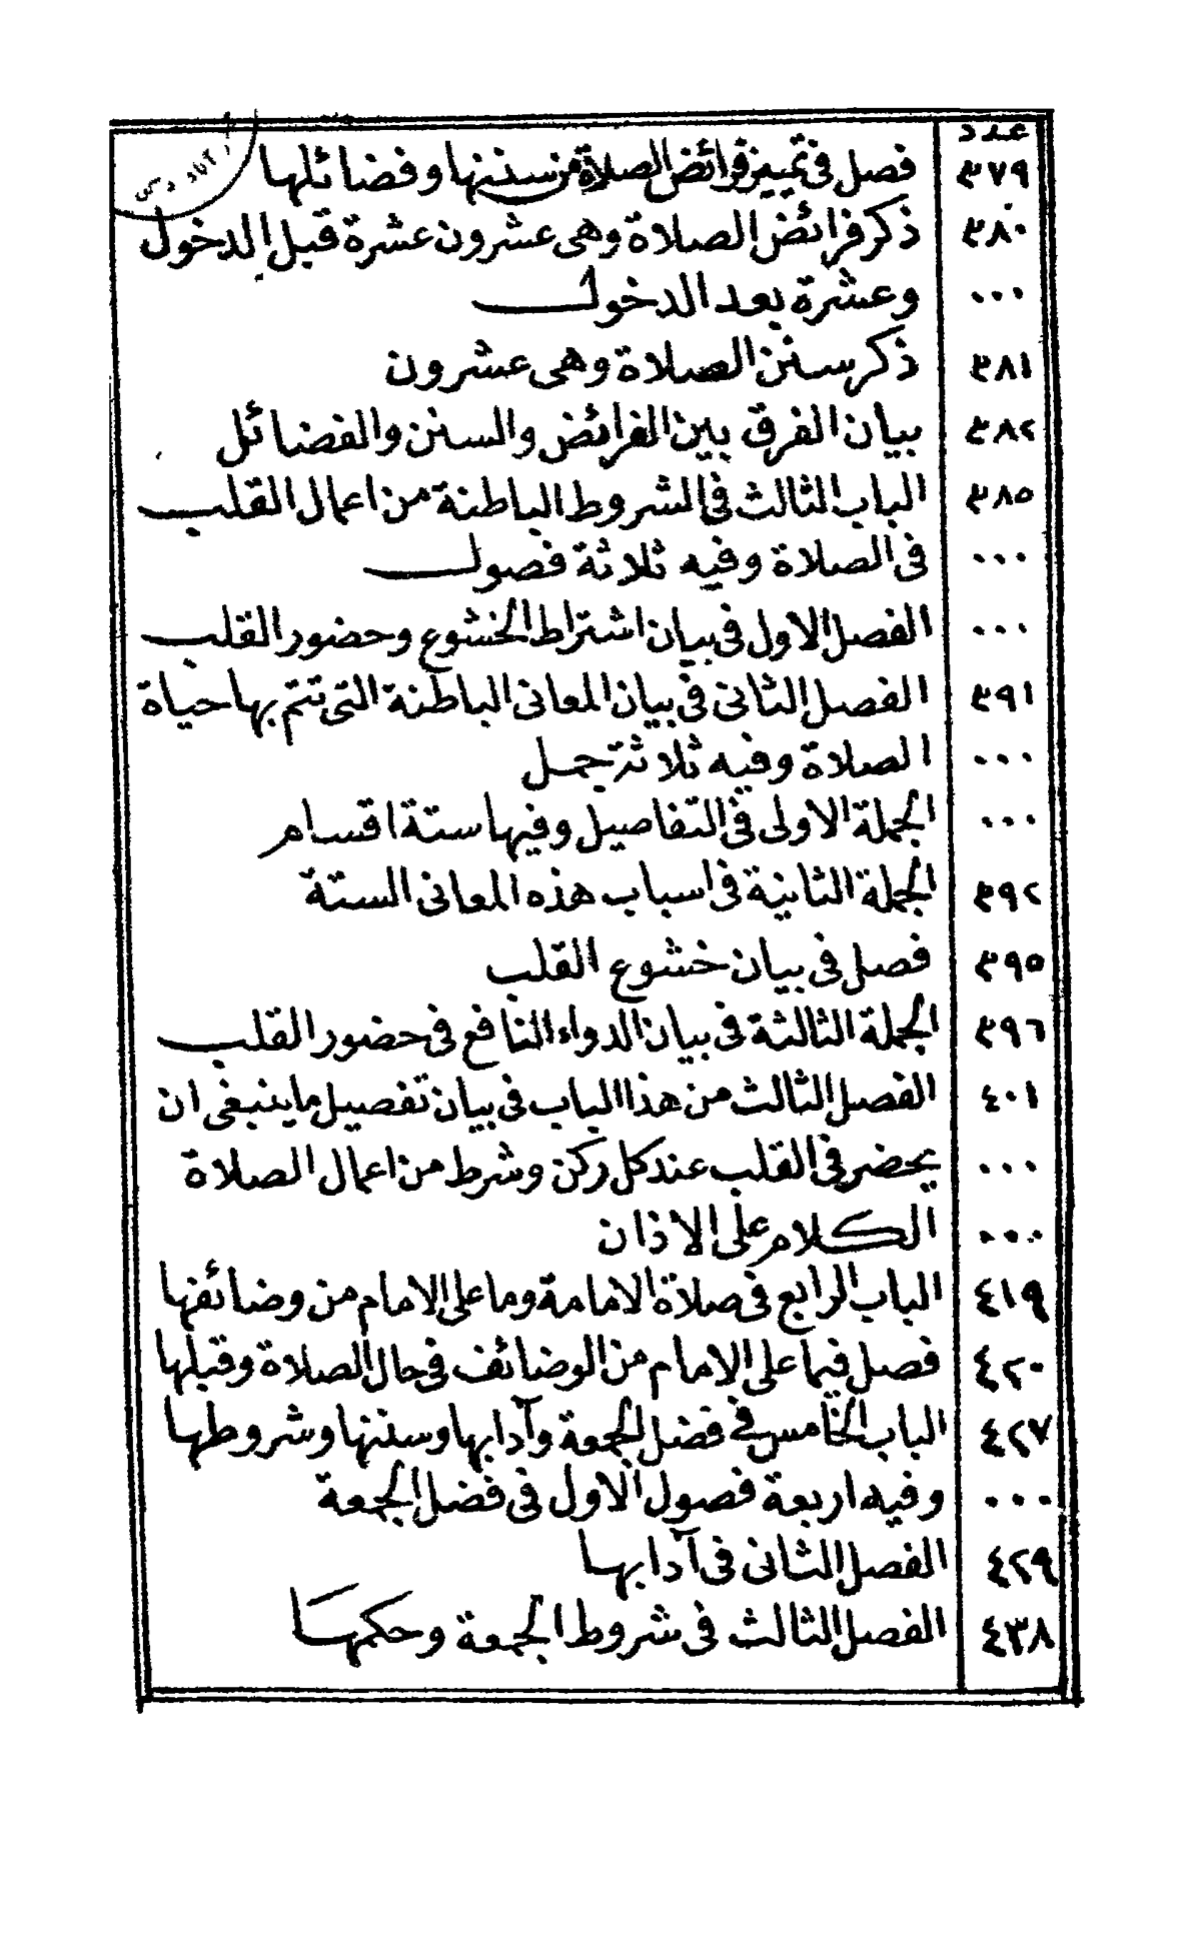 عدد
٣٧٩ فصل فى تمييز فرائض الصلاة من سننها وفضائلها
٣٨٠ ذكر فرائض الصلاة وهى عشرون عشرة قبل الدخول
٠٠٠ وعشرة بعد الدخول
٣٨١ ذكر سنن الصلاة وهى عشرون
٣٨٢ بيان الفرق بين الفرائض والسنن والفضائل
٣٨٥ الباب الثالث فى الشروط الباطنة من اعمال القلب
٠٠٠ فى الصلاة وفيه ثلاثة فصول
٠٠٠ الفصل الاول فى بيان اشتراط الخشوع وحضور القلب
٣٩١ الفصل الثانى فى بيان المعانى الباطنة التى تتم بها حياة
٠٠٠ الصلاة وفيه ثلاثة جمل
٠٠٠ الجملة الاولى فى التفاصيل وفيها ستة اقسام
٣٩٢ الجملة الثانية فى اسباب هذه المعانى الستة
٣٩٥ فصل فى بيان خشوع القلب
٣٩٦ الجملة الثالثة فى بيان الدواء النافع فى حضور القلب
٤٠١ الفصل الثالث من هذا الباب فى بيان تفصيل ما ينبغى ان
٠٠٠ يحضر فى القلب عند كل ركن وشرط من اعمال الصلاة
٠٠٠ الكلام على الاذان
٤١٩ الباب الرابع فى صلاة الامامة وما على الامام من وضائفها
٤٢٠ فصل فيما على الامام من الوضائف فى حال الصلاة وقبلها
٤٢٧ الباب الخامس فى فضل الجمعة وآدابها وسننها وشروطها
٠٠٠ وفيه اربعة فصول الاول فى فضل الجمعة
٤٢٩ الفصل الثانى فى آدابها
٤٣٨ الفصل الثالث فى شروط الجمعة وحكمها